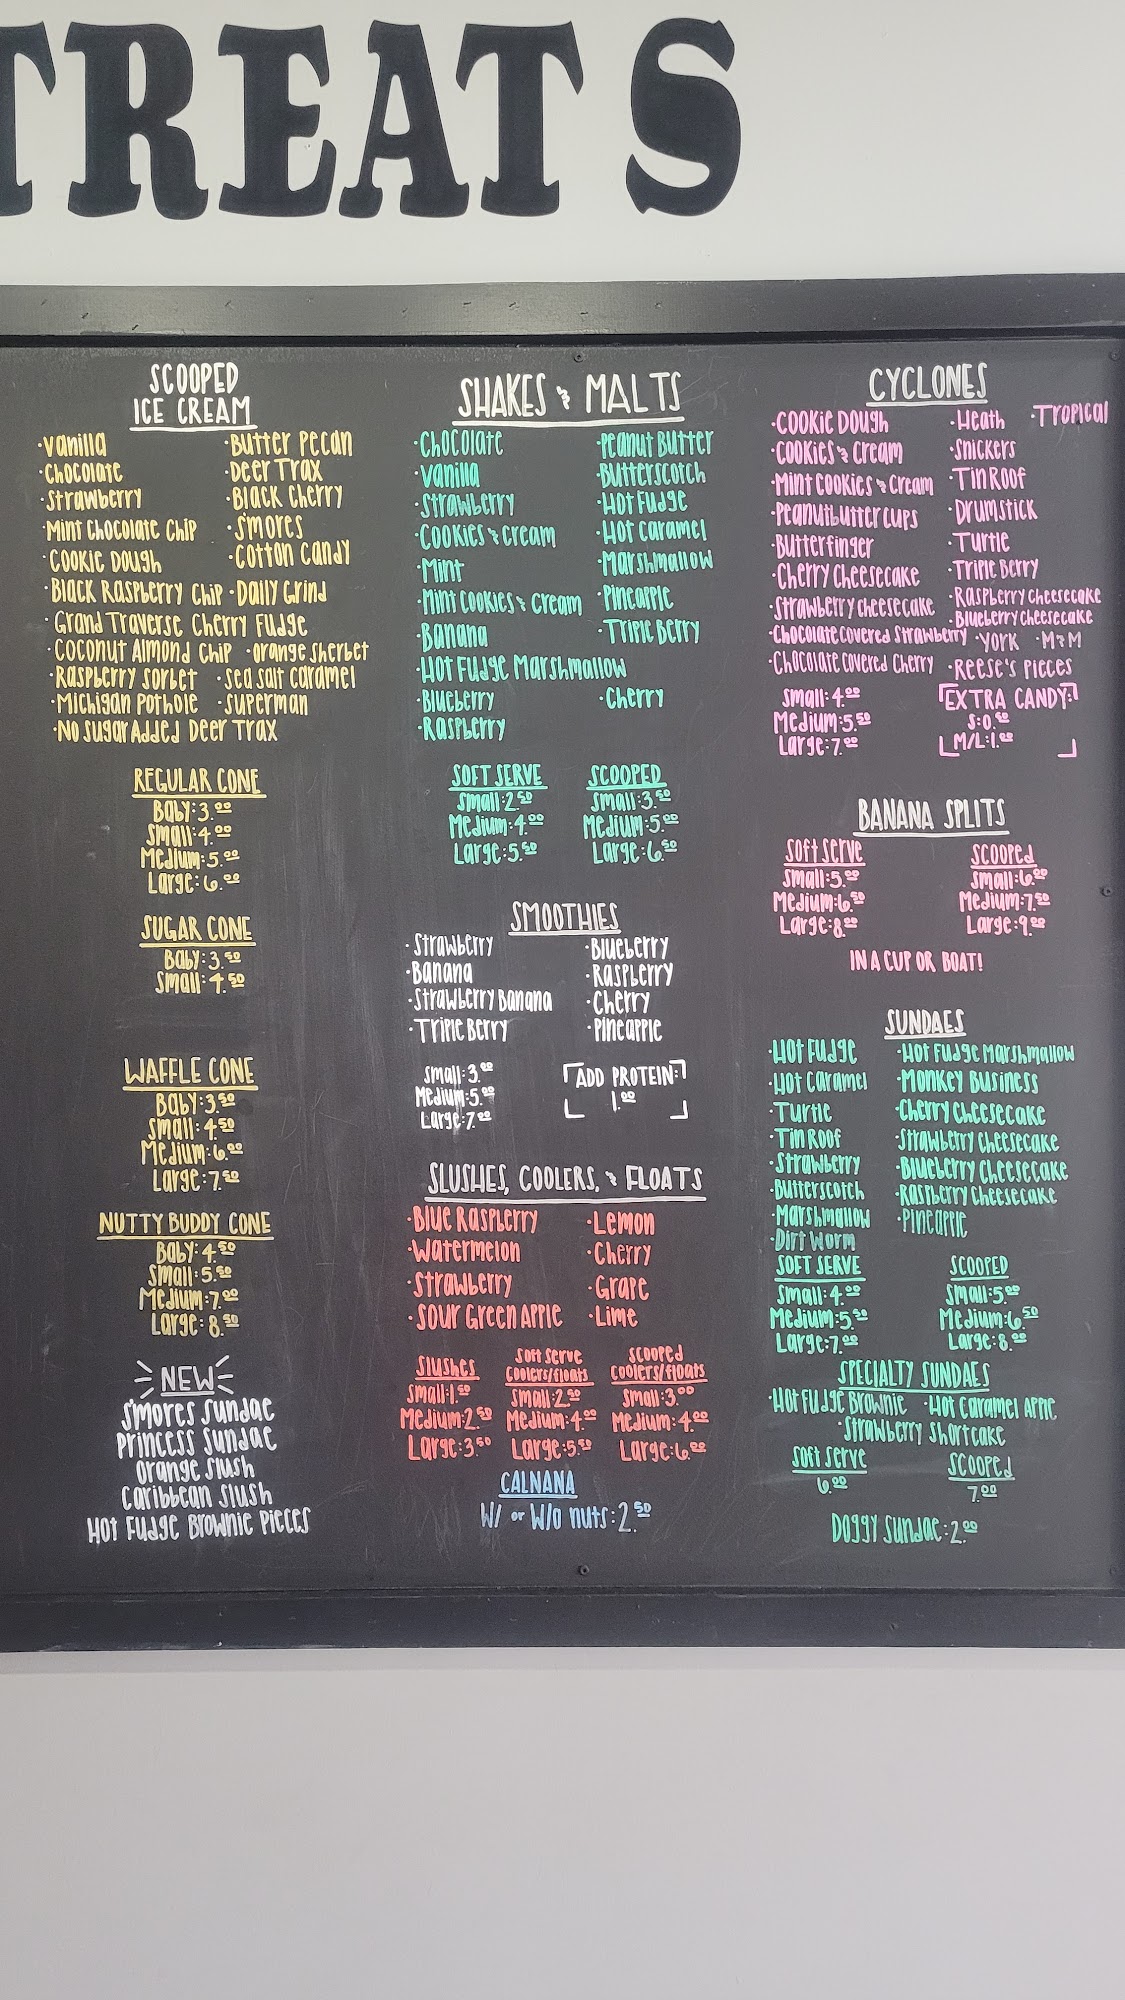 TREATS
SCOOPED
ICE CREAM
·Vanilla ·Butter Pecan
·Chocolate ·Deer Trax
·Strawberry ·Black Cherry
·Mint Chocolate Chip ·S'mores
·Cookie Dough ·Cotton Candy
·Black Raspberry Chip ·Daily Grind
·Grand Traverse Cherry Fudge
·Coconut Almond Chip ·Orange Sherbet
·Raspberry Sorbet ·Sea Salt Caramel
·Michigan Pothole ·Superman
·No Sugar Added Deer Trax
REGULAR CONE
Baby: 3.00
Small: 4.00
Medium: 5.00
Large: 6.00
SUGAR CONE
Baby: 3.50
Small: 4.50
WAFFLE CONE
Baby: 3.50
Small: 4.50
Medium: 6.00
Large: 7.50
NUTTY BUDDY CONE
Baby: 4.50
Small: 5.50
Medium: 7.00
Large: 8.50
NEW
S'mores Sundae
Princess Sundae
Orange Slush
Caribbean Slush
Hot Fudge Brownie Pieces
SHAKES & MALTS
·Chocolate ·Peanut Butter
·Vanilla ·Butterscotch
·Strawberry ·Hot Fudge
·Cookies & Cream ·Hot Caramel
·Mint ·Marshmallow
·Mint Cookies & Cream ·Pineapple
·Banana ·Triple Berry
·Hot Fudge Marshmallow
·Blueberry ·Cherry
·Raspberry
SOFT SERVE SCOOPED
Small: 2.50 Small: 3.50
Medium: 4.00 Medium: 5.00
Large: 5.50 Large: 6.50
SMOOTHIES
·Strawberry ·Blueberry
·Banana ·Raspberry
·Strawberry Banana ·Cherry
·Triple Berry ·Pineapple
Small: 3.00 ADD PROTEIN:
Medium: 5.00 1.00
Large: 7.00
SLUSHES, COOLERS, & FLOATS
·Blue Raspberry ·Lemon
·Watermelon ·Cherry
·Strawberry ·Grape
·Sour Green Apple ·Lime
Slushes Soft Serve Coolers/floats Scooped Coolers/floats
Small: 1.50 Small: 2.50 Small: 3.00
Medium: 2.50 Medium: 4.00 Medium: 4.00
Large: 3.50 Large: 5.50 Large: 6.00
CALNANA
W/ or W/o nuts: 2.50
CYCLONES
·Cookie Dough ·Heath ·Tropical
·Cookies & Cream ·Snickers
·Mint Cookies & Cream ·Tin Roof
·Peanutbutter Cups ·Drumstick
·Butterfinger ·Turtle
·Cherry Cheesecake ·Triple Berry
·Strawberry Cheesecake ·Raspberry Cheesecake
·Blueberry Cheesecake
·Chocolate Covered Strawberry ·York ·M&M
·Chocolate Covered Cherry ·Reese's Pieces
Small: 4.00 EXTRA CANDY:
Medium: 5.50 S: 0.50
Large: 7.00 M/L: 1.00
BANANA SPLITS
Soft Serve Scooped
Small: 5.00 Small: 6.00
Medium: 6.50 Medium: 7.50
Large: 8.00 Large: 9.00
IN A CUP OR BOAT!
SUNDAES
·Hot Fudge ·Hot Fudge Marshmallow
·Hot Caramel ·Monkey Business
·Turtle ·Cherry Cheesecake
·Tin Roof ·Strawberry Cheesecake
·Strawberry ·Blueberry Cheesecake
·Butterscotch ·Raspberry Cheesecake
·Marshmallow ·Pineapple
·Dirt Worm
SOFT SERVE SCOOPED
Small: 4.00 Small: 5.00
Medium: 5.50 Medium: 6.50
Large: 7.00 Large: 8.00
SPECIALTY SUNDAES
·Hot Fudge Brownie ·Hot Caramel Apple
·Strawberry Shortcake
Soft Serve Scooped
6.00 7.00
Doggy Sundae: 2.00